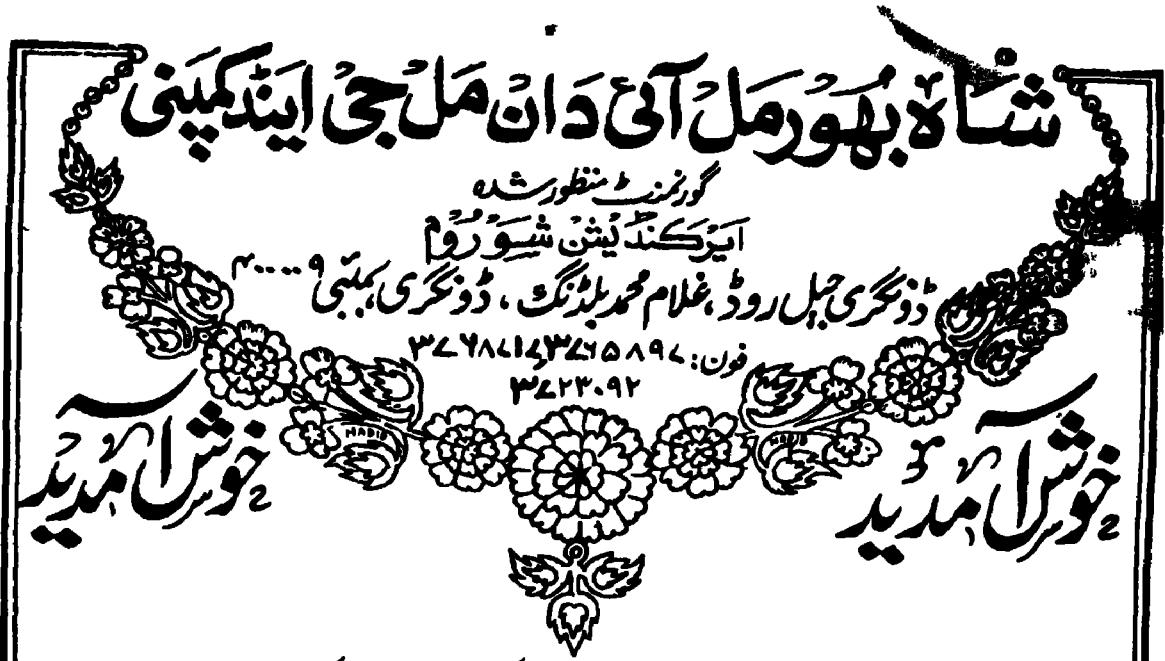 شاہ بھورمل آئی دان مل جی اینڈ کمپنی
گورنمنٹ منظور شدہ
ایرکنڈیشن شو روم
ڈونگری جیل روڈ، غلام محمد بلڈنگ، ڈونگری، بمبئی ۴۰۰۰۰۹
فون: ۳۷۶۵۸۹۷، ۳۷۶۸۷۱۷
۳۷۲۳۰۹۲
خوش آمدید
خوش آمدید
HADID
HADID